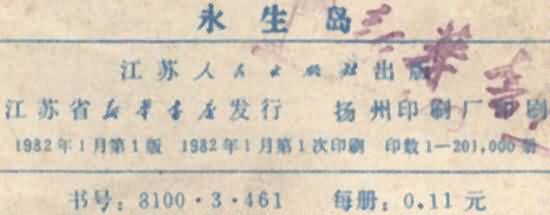 永生岛
江苏人民出版社出版
江苏省新华书店发行 扬州印刷厂印刷
1982年1月第1版 1982年1月第1次印刷 印数1—201,000册
书号：8100·3·461 每册：0.11元